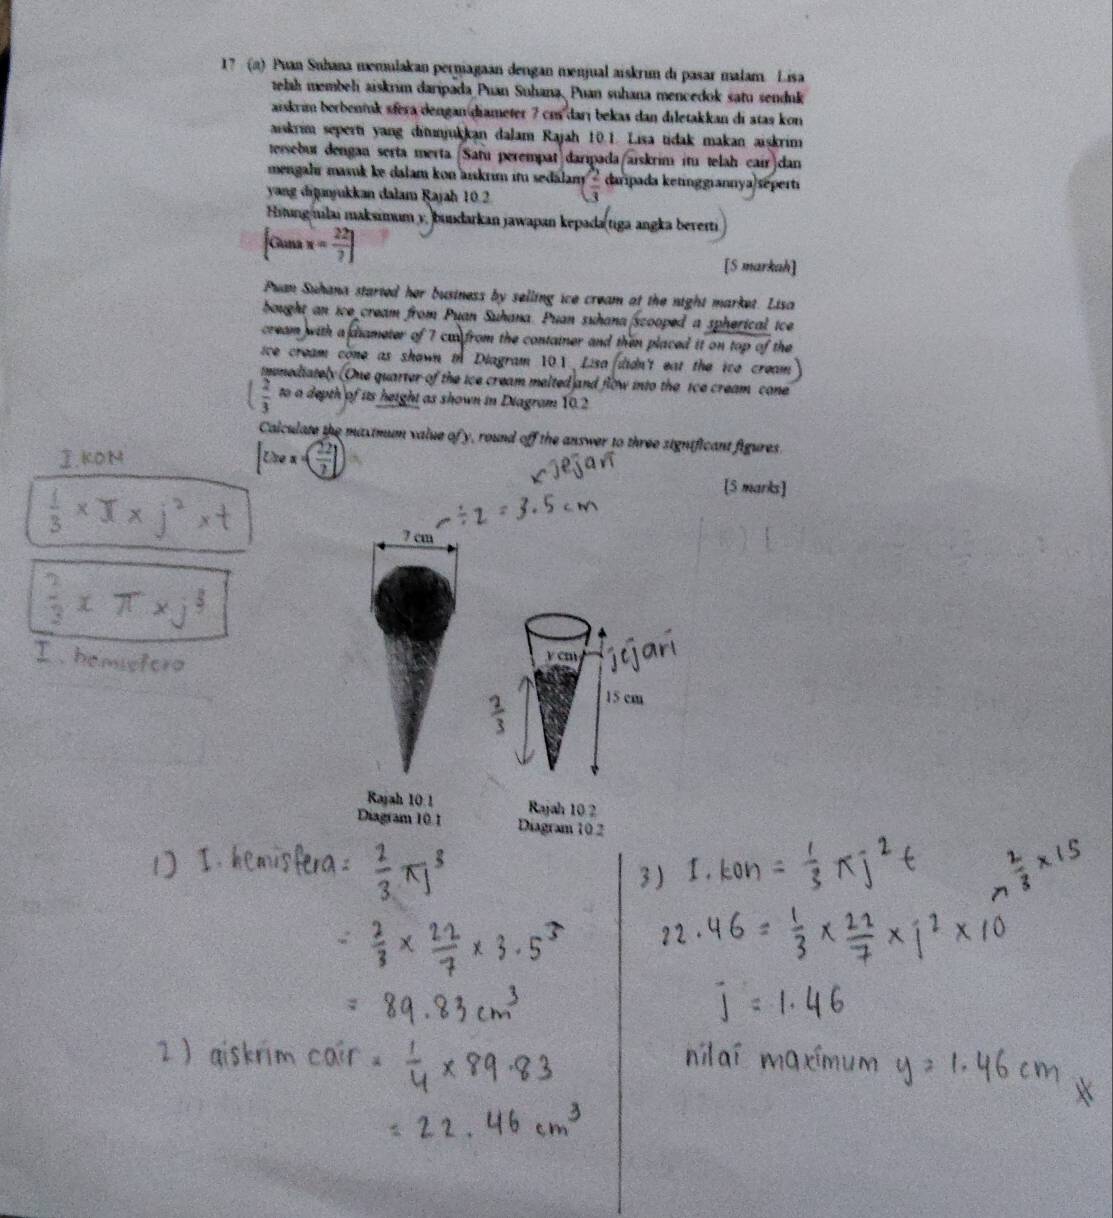 17 (a) Puan Suhana memulakan perniagaan dengan menjual aiskrim di pasar malam. Lisa
telah membeli aiskrim daripada Puan Suhana. Puan suhana mencedok satu senduk
aiskrim berbentuk sfera dengan diameter 7 cm dari bekas dan diletakkan di atas kon
aiskrim seperti yang ditunjukkan dalam Rajah 10.1. Lisa tidak makan aiskrim
tersebut dengan serta merta. Satu perempat daripada aiskrim itu telah cair dan
mengalir masuk ke dalam kon aiskrim itu sedalam 2/3 daripada ketinggiannya seperti
yang ditunjukkan dalam Rajah 10.2.
Hitung nilai maksimum y, bundarkan jawapan kepada tiga angka bererti.
[Guna π = 22/7]
[5 markah]
Puan Suhana started her business by selling ice cream at the night market. Lisa
bought an ice cream from Puan Suhana. Puan suhana scooped a spherical ice
cream with a diameter of 7 cm from the container and then placed it on top of the
ice cream cone as shown in Diagram 10.1. Lisa didn't eat the ice cream
immediately. One quarter of the ice cream melted and flow into the ice cream cone
2/3 to a depth of its height as shown in Diagram 10.2
Calculate the maximum value of y, round off the answer to three significant figures.
[Use π = 22/7]
[5 marks]
I. KON
1/3 × π × j² × t
2/3 × π × j³
I. hemisfera
jejari
÷2 = 3.5 cm
7 cm
y cm
jejari
15 cm
2/3
Rajah 10.1
Diagram 10.1
Rajah 10.2
Diagram 10.2
1) I. hemisfera = 2/3 πj³
= 2/3 × 22/7 × 3.5³
= 89.83 cm³
2) aiskrim cair = 1/4 × 89.83
= 22.46 cm³
3) I. kon = 1/3 πj² t
2/3 × 15
22.46 = 1/3 × 22/7 × j² × 10
j = 1.46
nilai maximum y = 1.46 cm